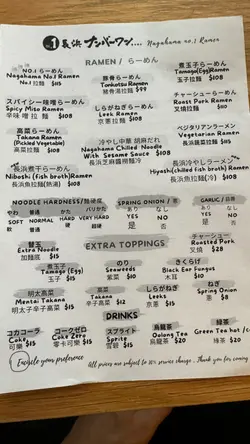 No.1 長浜 ナンバーワン.... Nagahama no.1 Ramen
RAMEN / らーめん
No.1 らーめん
Nagahama No.1 Ramen
No.1 拉麵 $115
豚骨らーめん
Tonkotsu Ramen
豬骨湯拉麵 $99
煮玉子らーめん
Tamago(Egg)Ramen
玉子拉麵 $108
スパイシー味噌らーめん
Spicy Miso Ramen
辛味噌拉麵 $118
しらがねぎらーめん
Leek Ramen
京蔥拉麵 $108
チャーシューらーめん
Roast Pork Ramen
叉燒拉麵 $110
高菜らーめん
Takana Ramen
(Pickled Vegetable)
高菜拉麵 $108
冷やし中華 胡麻だれ
Nagahama Chilled Noodle
With Sesame Sauce $108
長浜芝麻醬撈麵
ベジタリアンラーメン
Nagahama Vegetarian Ramen
長浜蔬菜拉麵 $115
長浜煮干らーめん
Niboshi (fish broth)Ramen
長浜魚拉麵(熱湯) $108
長浜冷やしラーメン
Hiyashi(chilled fish broth) Ramen
長浜魚拉麵(冷) $108
NOODLE HARDNESS/麵硬度
やわ 普通 かた バリかた ハリガネ
SOFT NORMAL HARD VERY HARD VERY VERY HARD
軟 普通 硬
SPRING ONION / 蔥
あり なし
YES NO
是 否
GARLIC / 蒜蓉
あり なし
YES NO
是 否
EXTRA TOPPINGS
替玉
Extra Noodle
加麵底 $15
のり
Seaweeds
紫菜 $10
チャーシュー
Roasted Pork
叉燒 $28
煮玉子
Tamago (Egg)
玉子 $15
きくらげ
Black Ear Fungus
木耳 $10
明太高菜
Mentai Takana
明太子辛子高菜 $15
高菜
Takana
辛子高菜 $12
しらがねぎ
Leeks
京蔥 $15
ねぎ
Spring Onion
蔥 $8
DRINKS
コカコーラ
Coke
可樂 $15
コークゼロ
Coke Zero
零卡可樂 $15
スプライト
Sprite
雪碧 $15
烏龍茶
Oolong Tea
烏龍茶 $20
緑茶
Green Tea hot /
綠茶
Encircle your preference
All prices are subject to 10% service charge , Thank you for coming